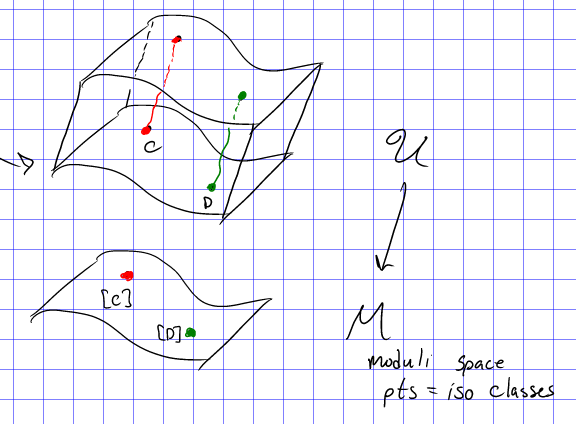 C
D
𝒰
[C]
[D]
M
moduli space
pts = iso classes